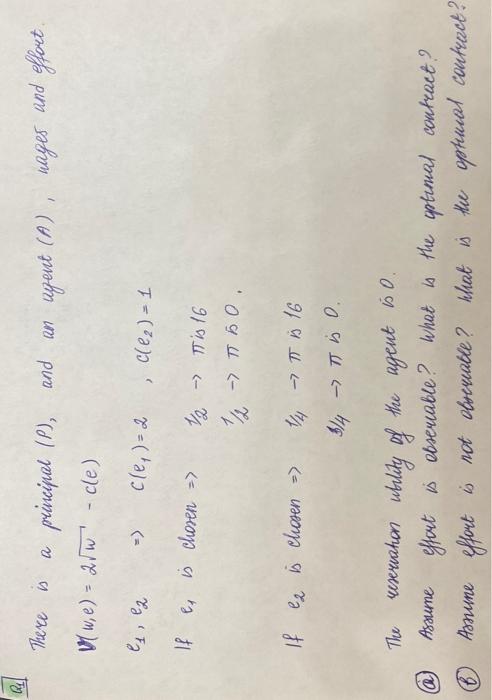 Q1
There is a principal (P), and an agent (A), wages and effort.
V(w,e) = 2√w - c(e)
e₁, e₂ => c(e₁)=2 , c(e₂)=1
If e₁ is chosen => 1/2 -> π is 16
1/2 -> π is 0.
If e₂ is chosen => 1/4 -> π is 16
3/4 -> π is 0.
The reservation utility of the agent is 0.
(a) Assume effort is observable? What is the optimal contract?
(B) Assume effort is not observable? What is the optimal contract?